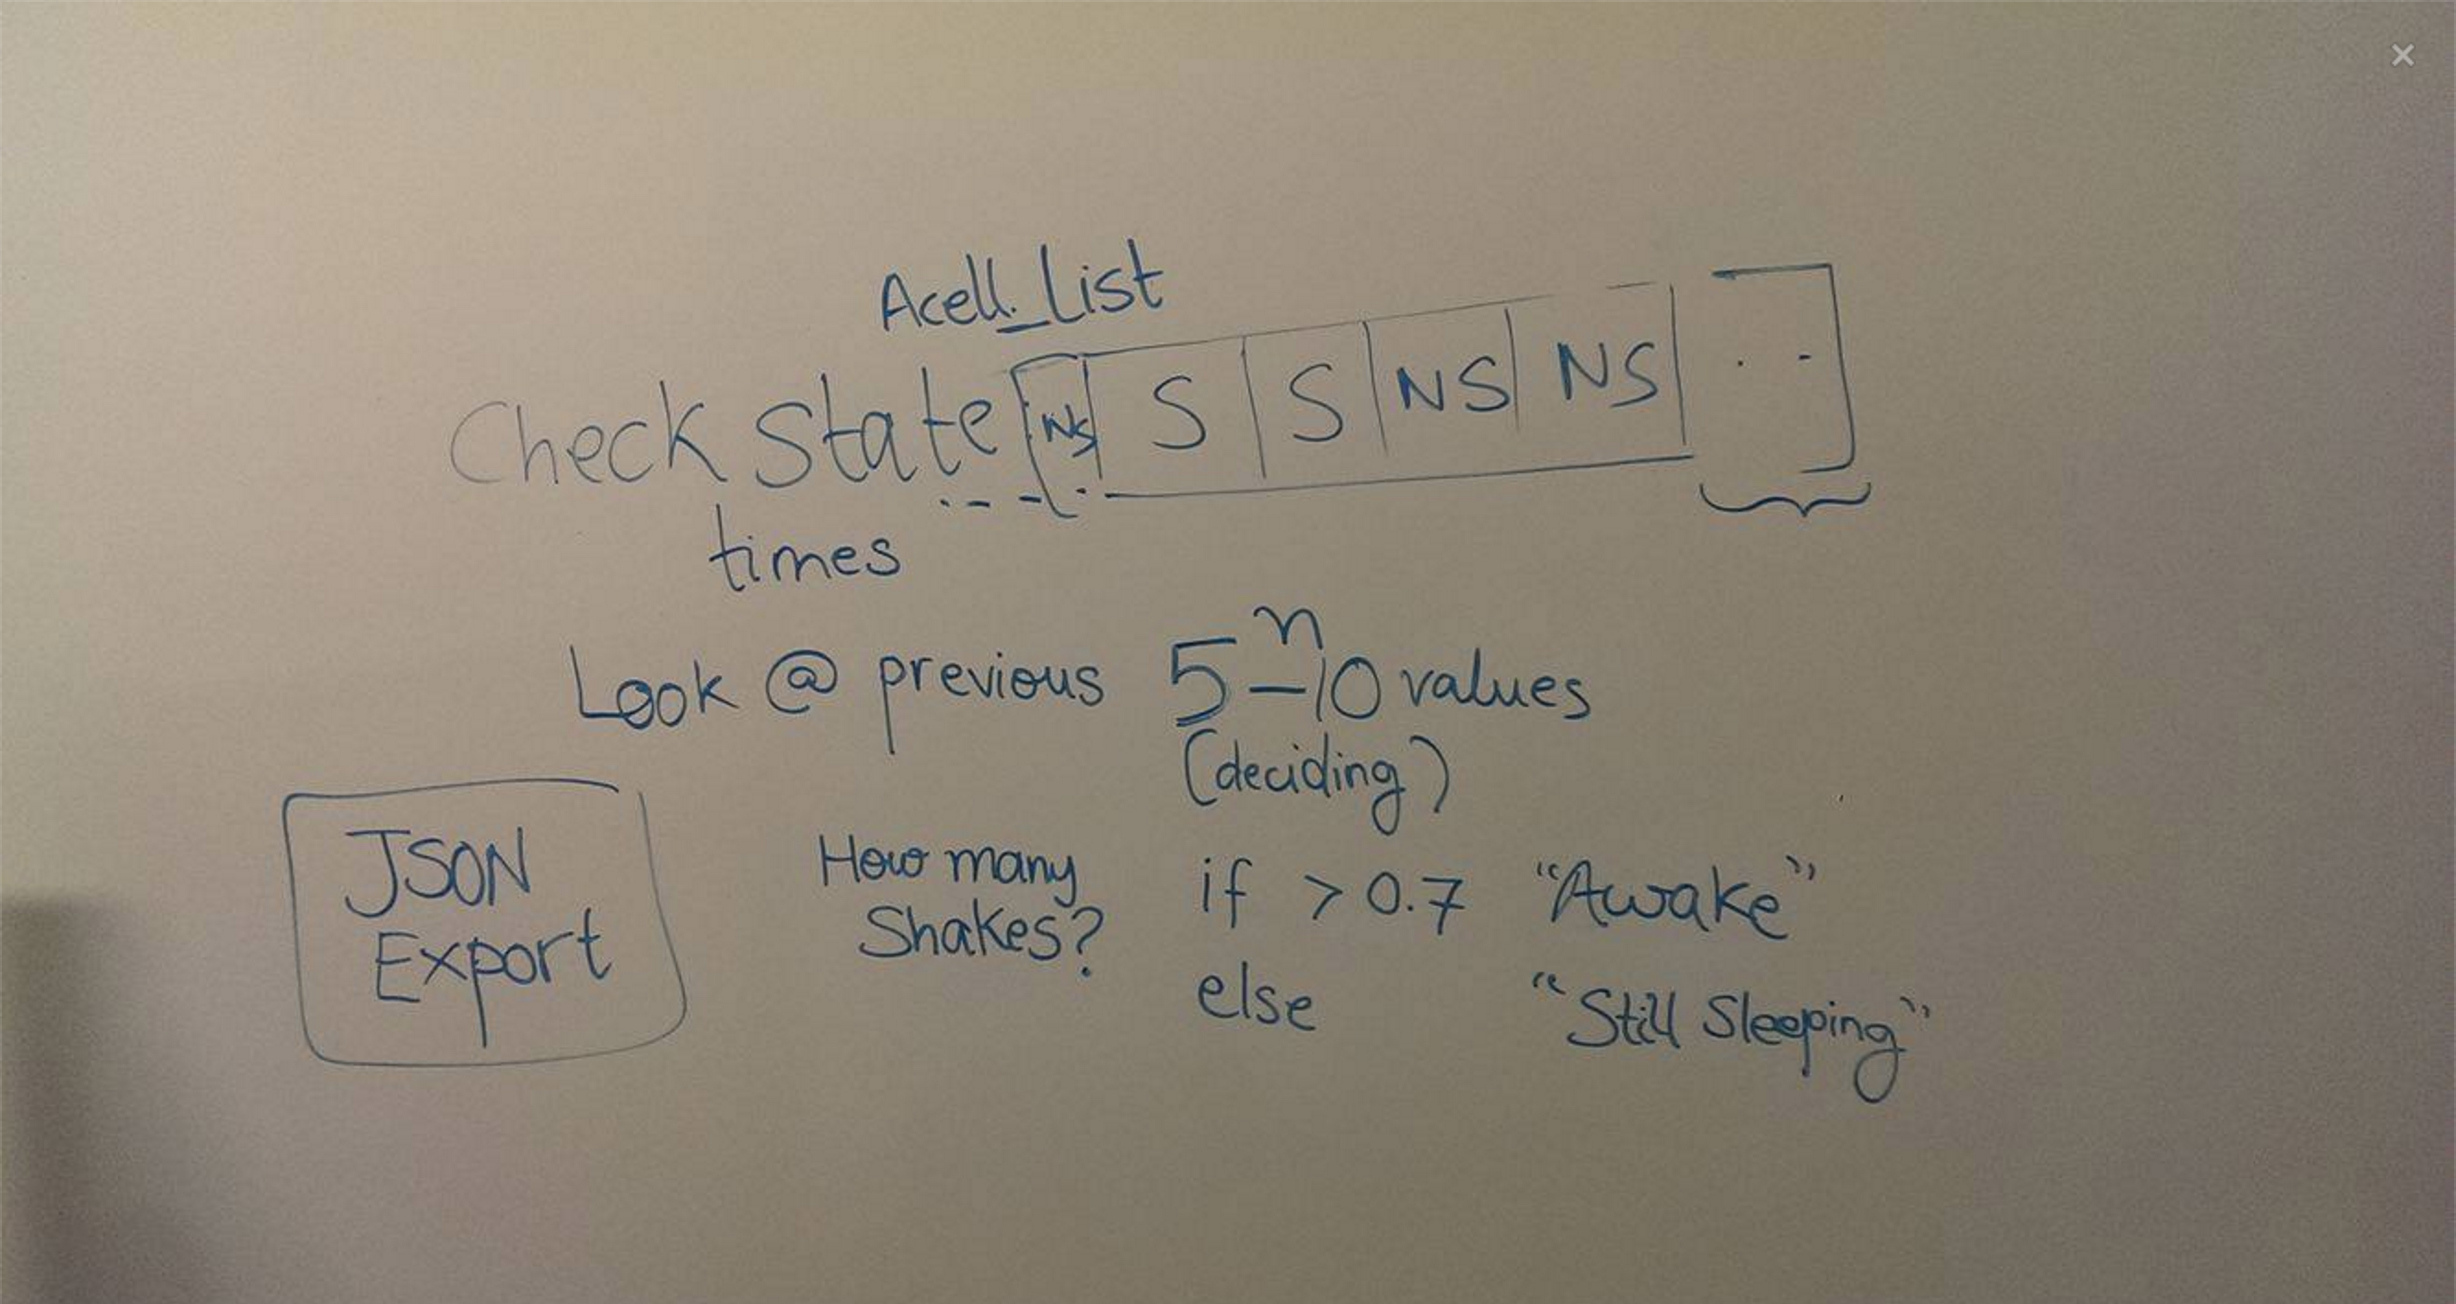 Acell_List
Check State [NS| S | S | NS | NS | . . ]
times
n
Look @ previous 5-10 values
(deciding)
JSON
Export
How many
Shakes?
if > 0.7 "Awake"
else "Still Sleeping"